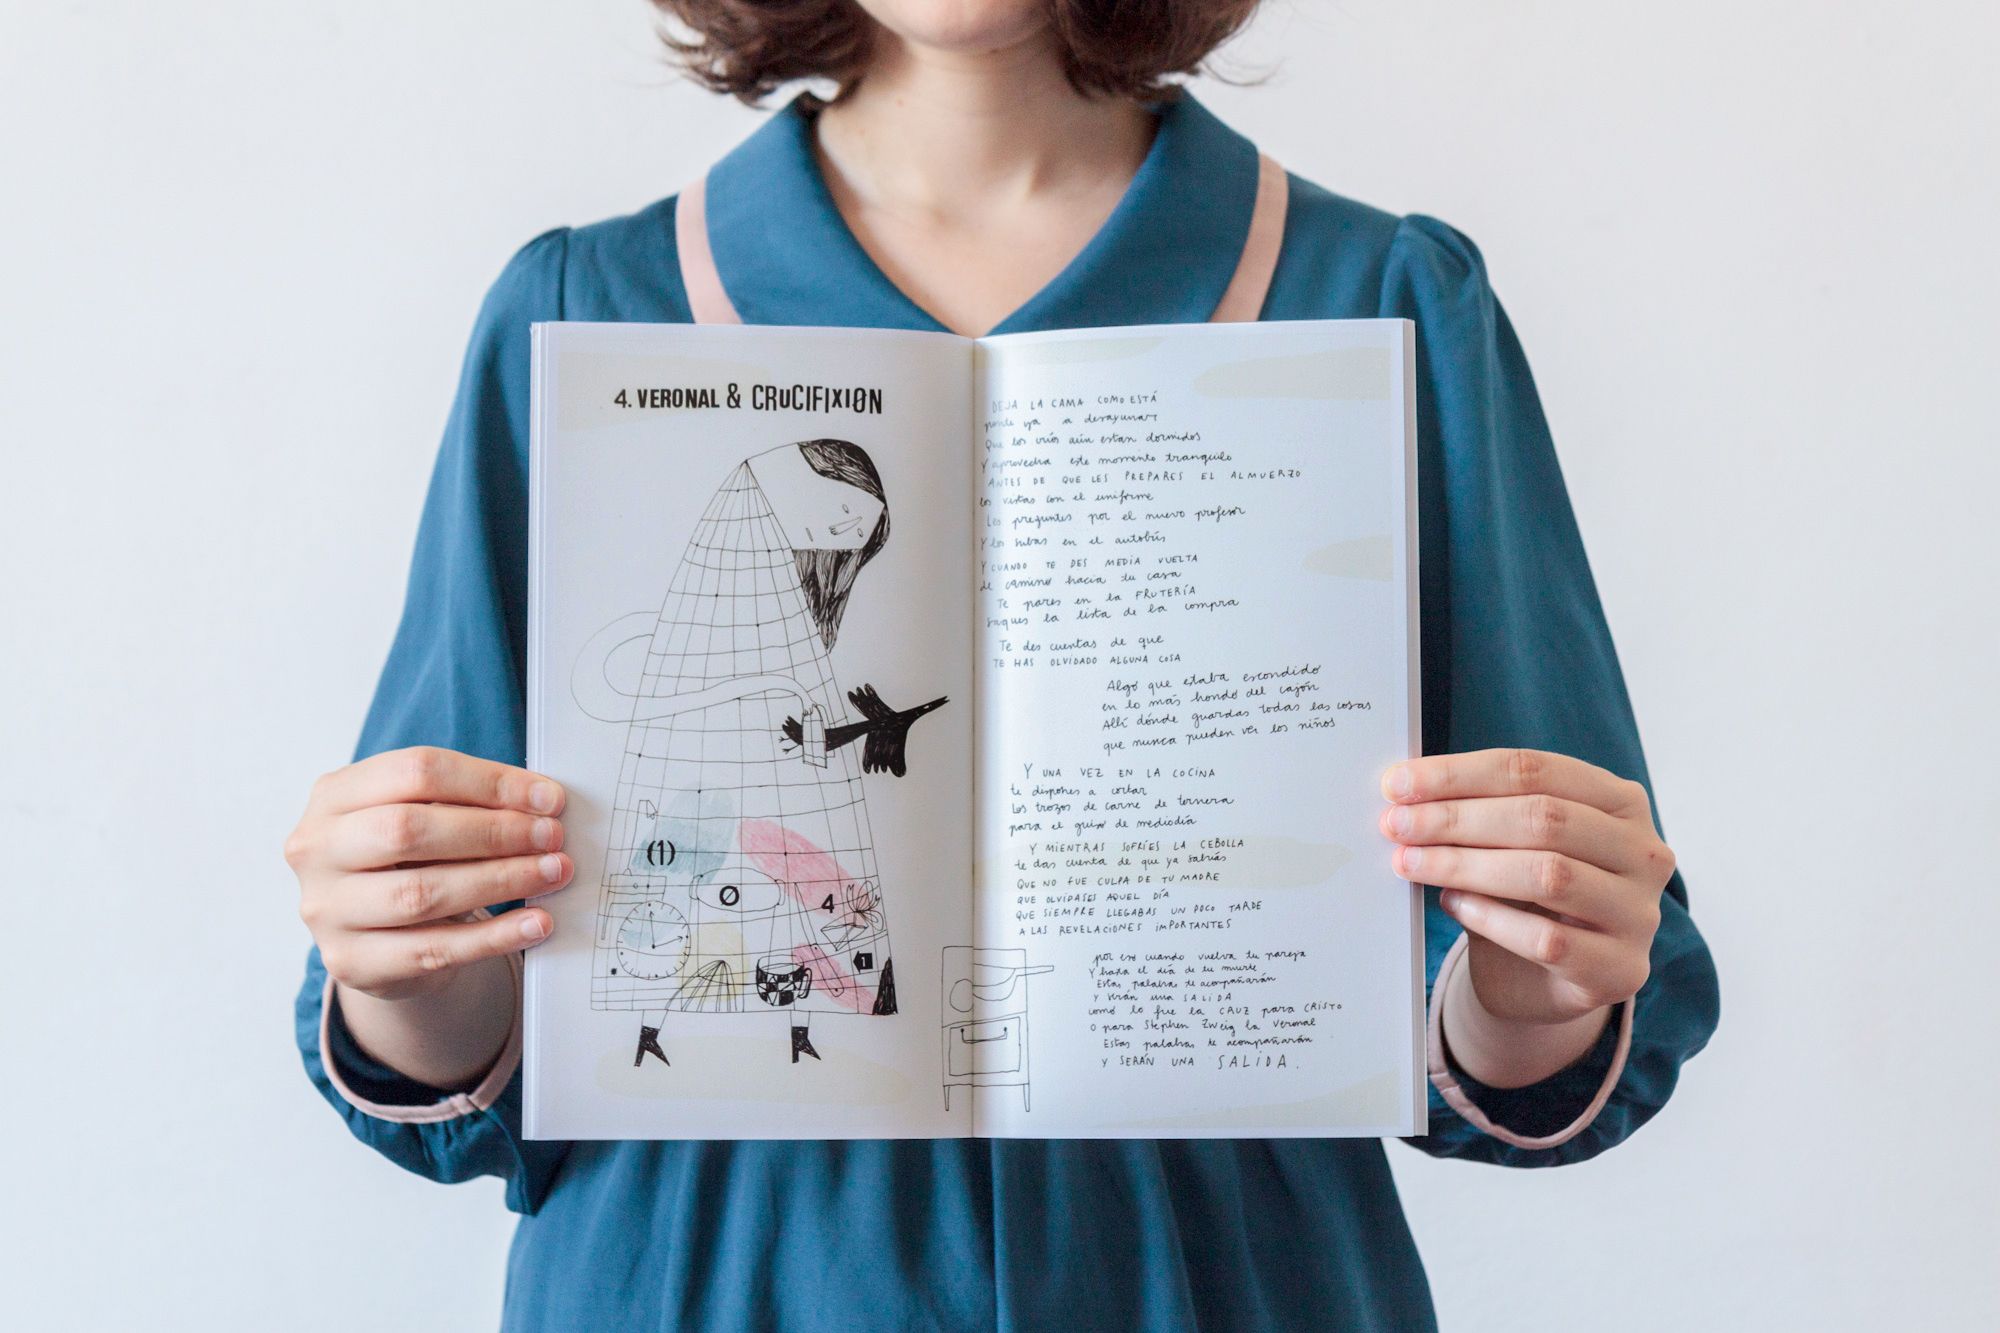 4. VERONAL & CRUCIFIXIØN
(1)
Ø
4
1
DEJA LA CAMA COMO ESTÁ
ponte ya a desayunar
Que los críos aún estan dormidos
Y aprovecha este momento tranquilo
ANTES DE QUE LES PREPARES EL ALMUERZO
los vistas con el uniforme
Les preguntes por el nuevo profesor
Y los subas en el autobús
Y CUANDO TE DES MEDIA VUELTA
de camino hacia tu casa
Te pares en la FRUTERÍA
saques la lista de la compra
Te des cuentas de que
TE HAS OLVIDADO ALGUNA COSA
Algo que estaba escondido
en lo más hondo del cajón
Allí dónde guardas todas las cosas
que nunca pueden ver los niños
Y UNA VEZ EN LA COCINA
te dispones a cortar
Los trozos de carne de ternera
para el guiso de mediodía
Y MIENTRAS SOFRÍES LA CEBOLLA
te das cuenta de que ya sabías
QUE NO FUE CULPA DE TU MADRE
QUE OLVIDASES AQUEL DÍA
QUE SIEMPRE LLEGABAS UN POCO TARDE
A LAS REVELACIONES IMPORTANTES
por eso cuando vuelva tu pareja
Y hasta el día de tu muerte
Estas palabras te acompañarán
Y serán una SALIDA
como lo fue la CRUZ para CRISTO
O para Stephen Zweig la Veronal
Estas palabras te acompañarán
Y SERÁN UNA SALIDA.